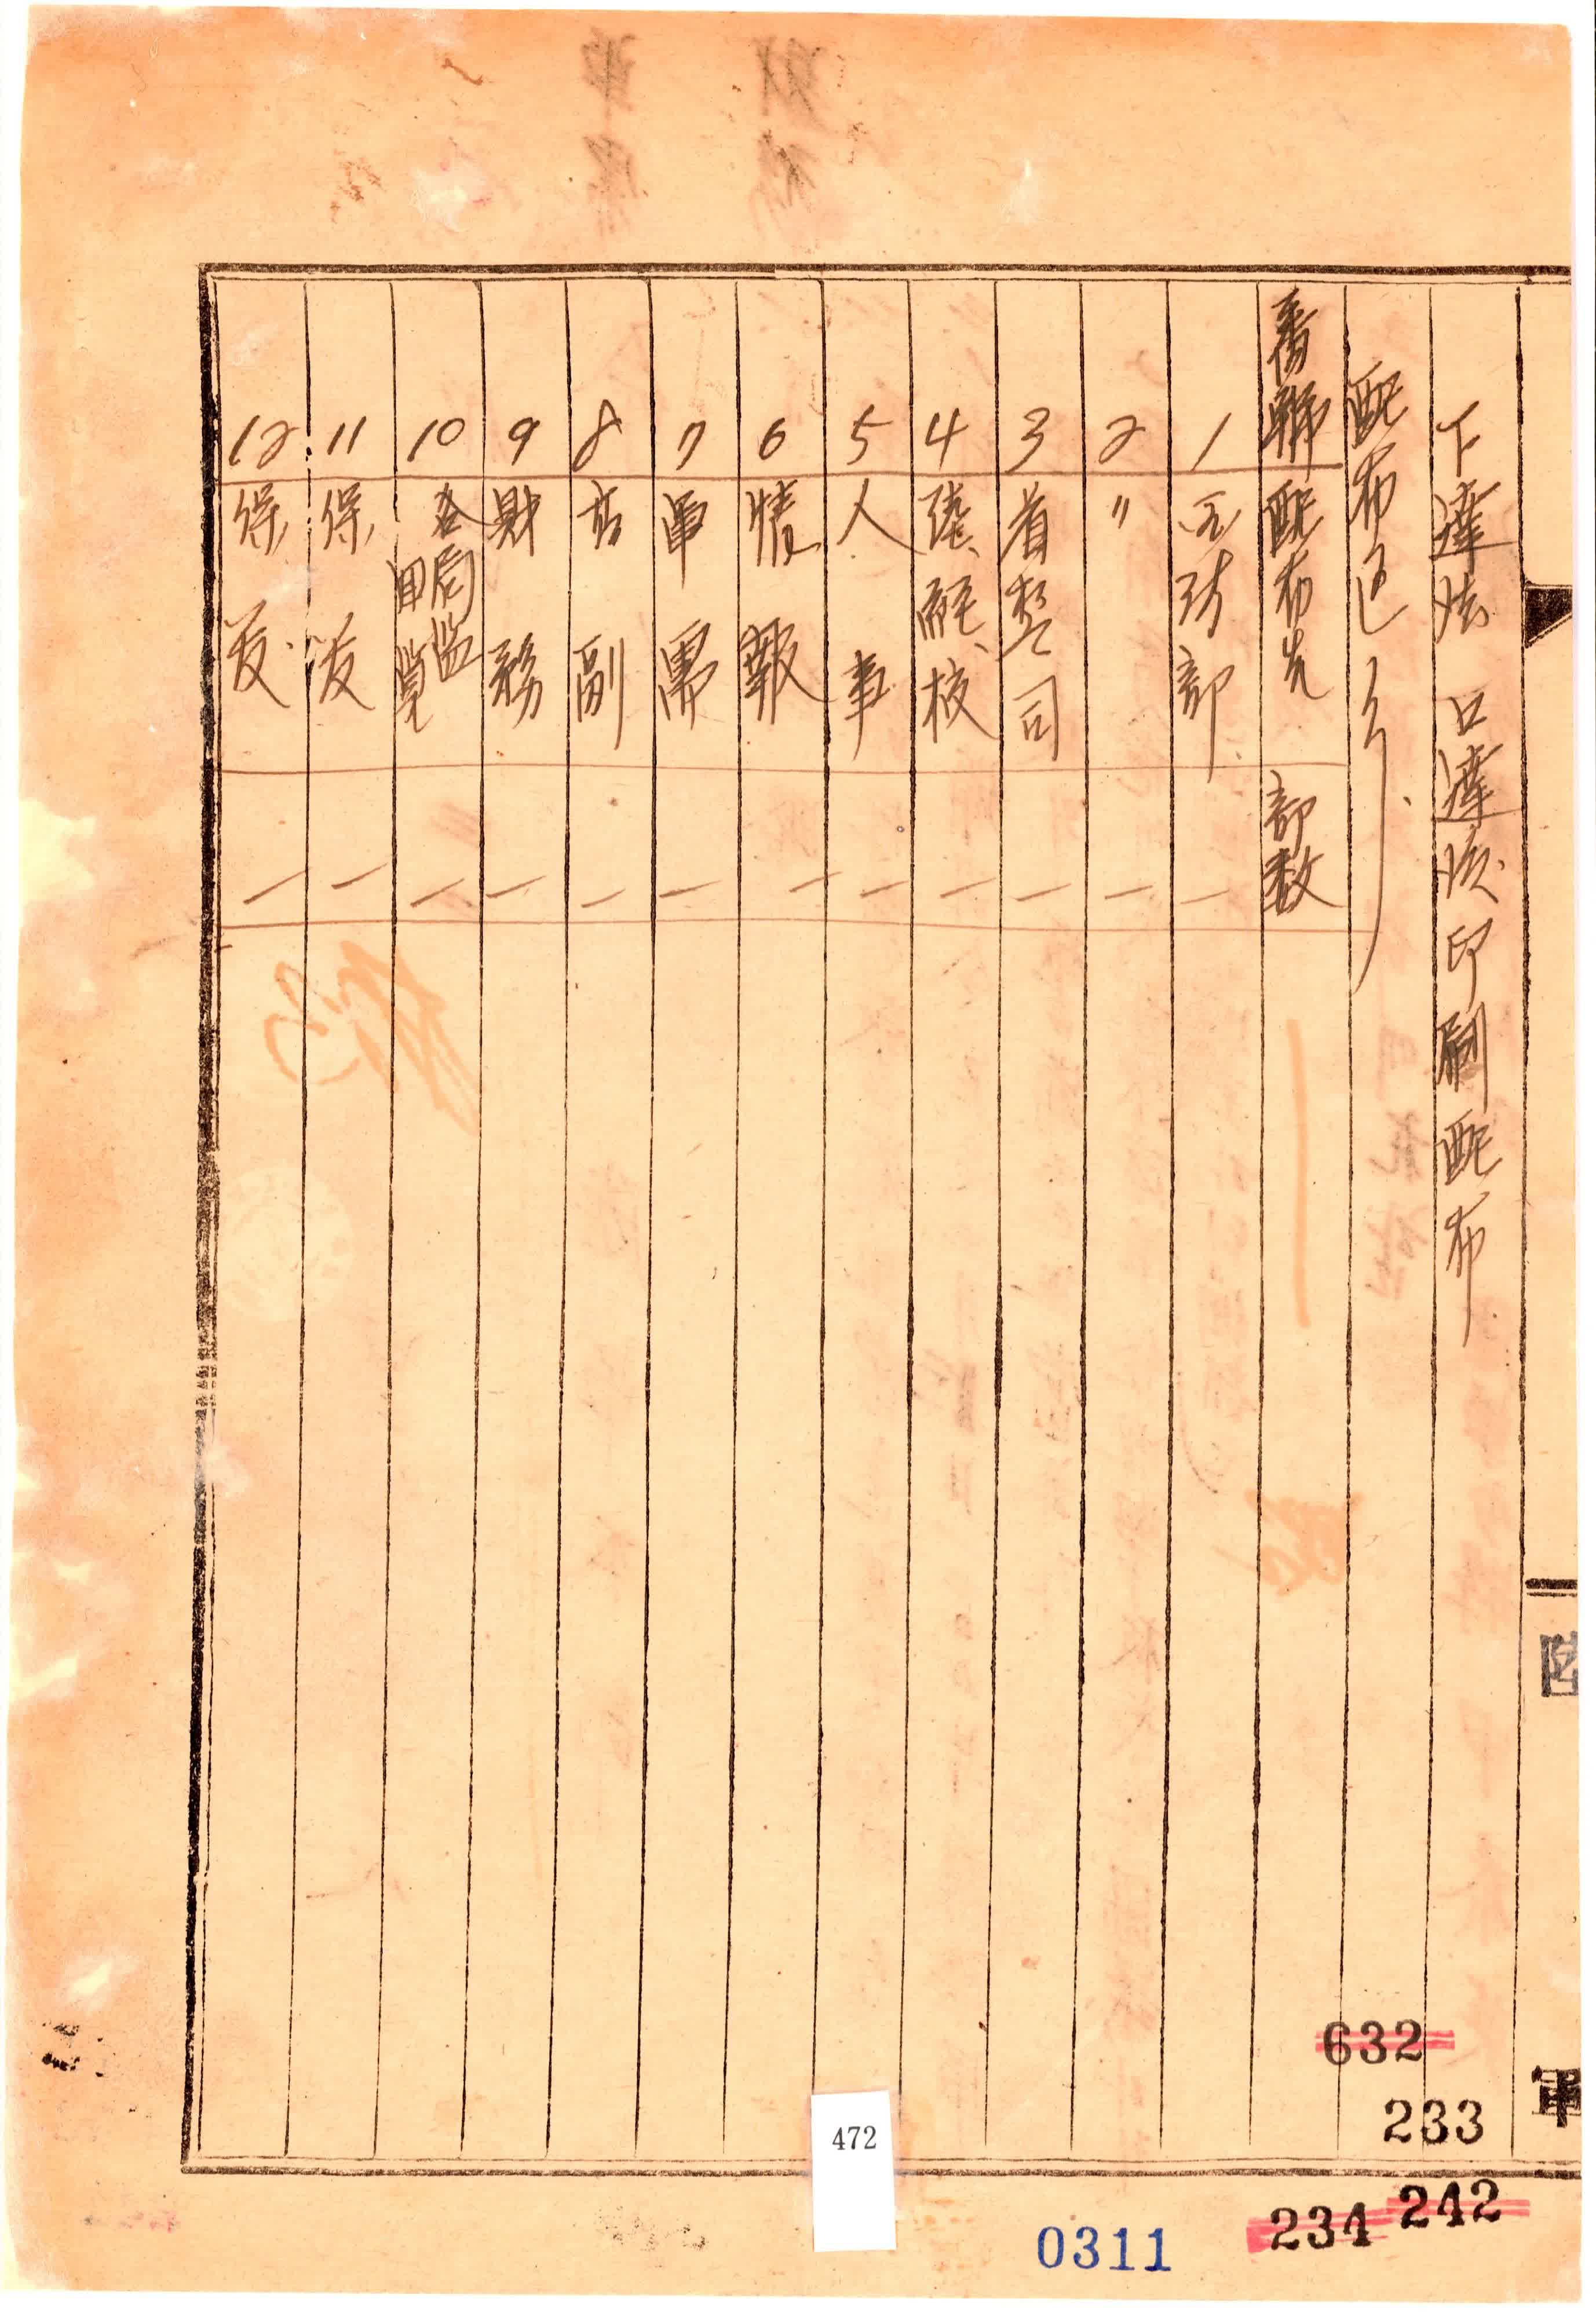 下達法 口達後印刷配布
配布區分
番號 配布先 部数
1 国防部 一
2 〃 一
3 首警司 一
4 陸經校 一
5 人事 一
6 情報 一
7 軍需 一
8 高副 一
9 財務 一
10 一
11 保 一
12 保 一
陸
軍
632
233
234 242
472
0311